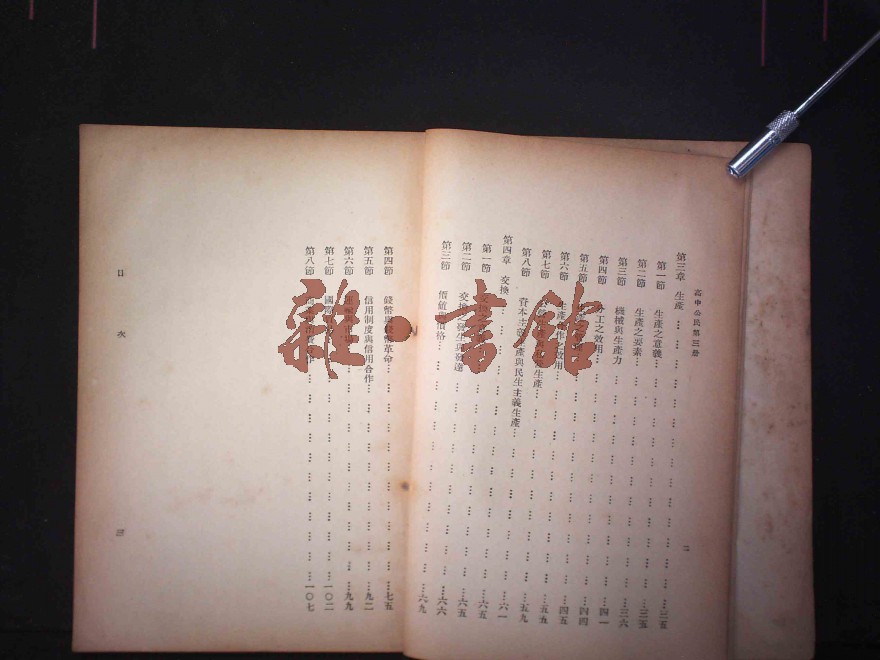 高中公民第三册
第三章 生產…………三五
第一節 生產之意義…………三五
第二節 生產之要素…………三六
第三節 機械與生產力…………四一
第四節 分工之效用…………四四
第五節…………四五
第六節 生產合作之效用…………五五
第七節 生產…………五九
第八節 資本主義生產與民生主義生產…………六一
第四章 交換…………六五
第一節 交換…………六五
第二節 交換之發生與發達…………六六
第三節 價值與價格…………六九
第四節 錢幣與錢幣革命…………七五
第五節 信用制度與信用合作…………九二
第六節…………九九
第七節 國際…………一〇二
第八節…………一〇七
目次
四
雜·書館